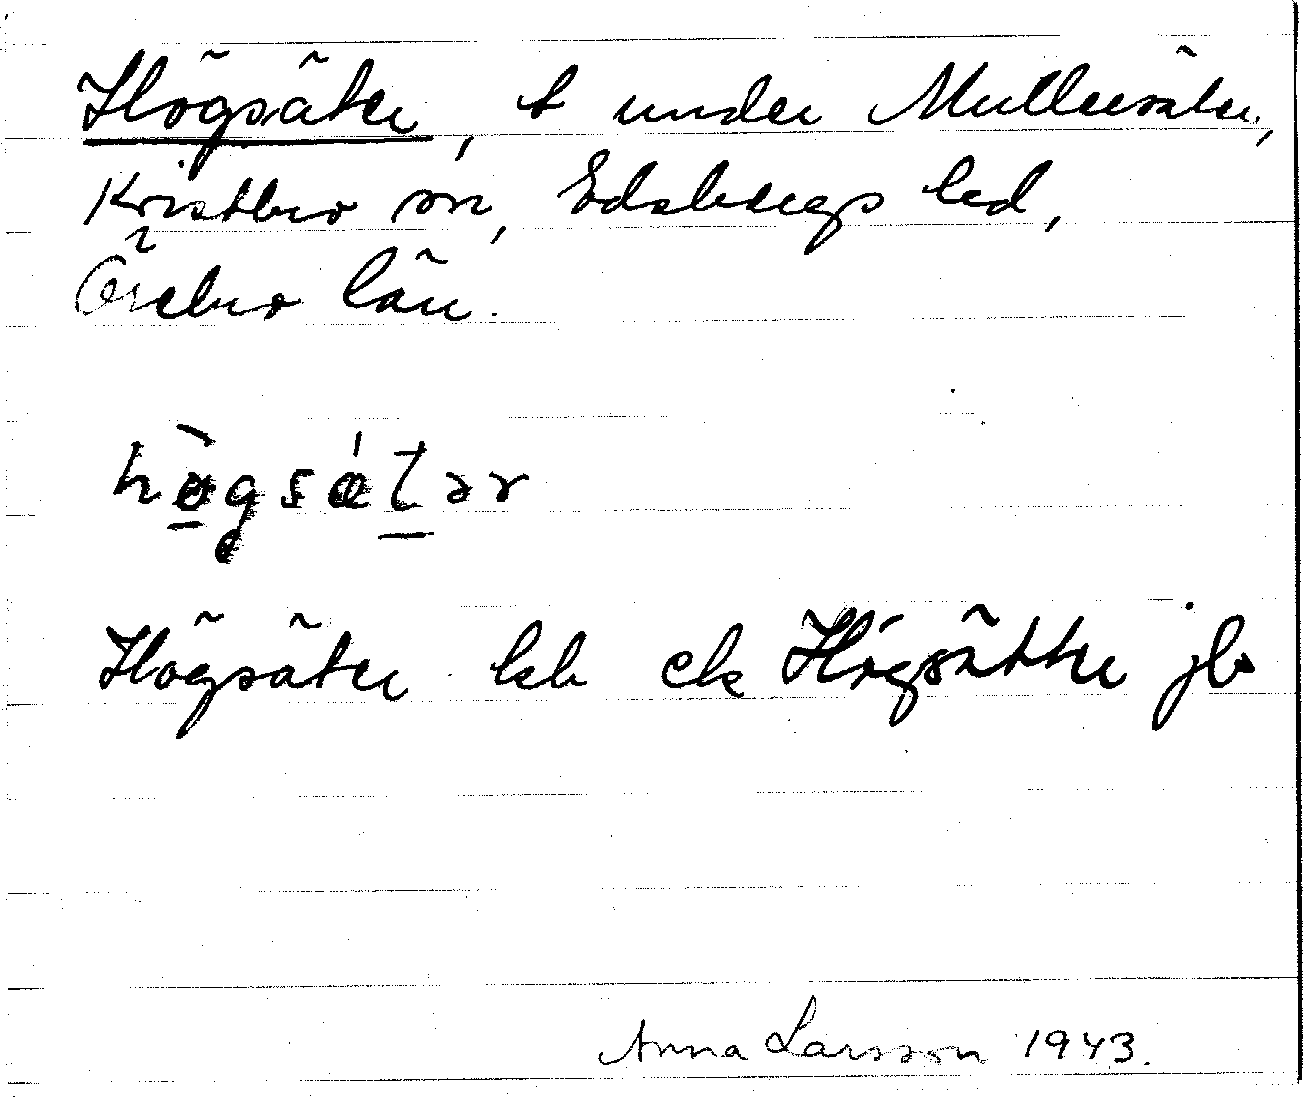 Högsäter, t under Mullersäter,
Kvistbro sn, Edsbergs hd,
Örebro län.
hø̀gsǽtər
Högsäter hsb ek Högsätter jb
Anna Larsson 1943.